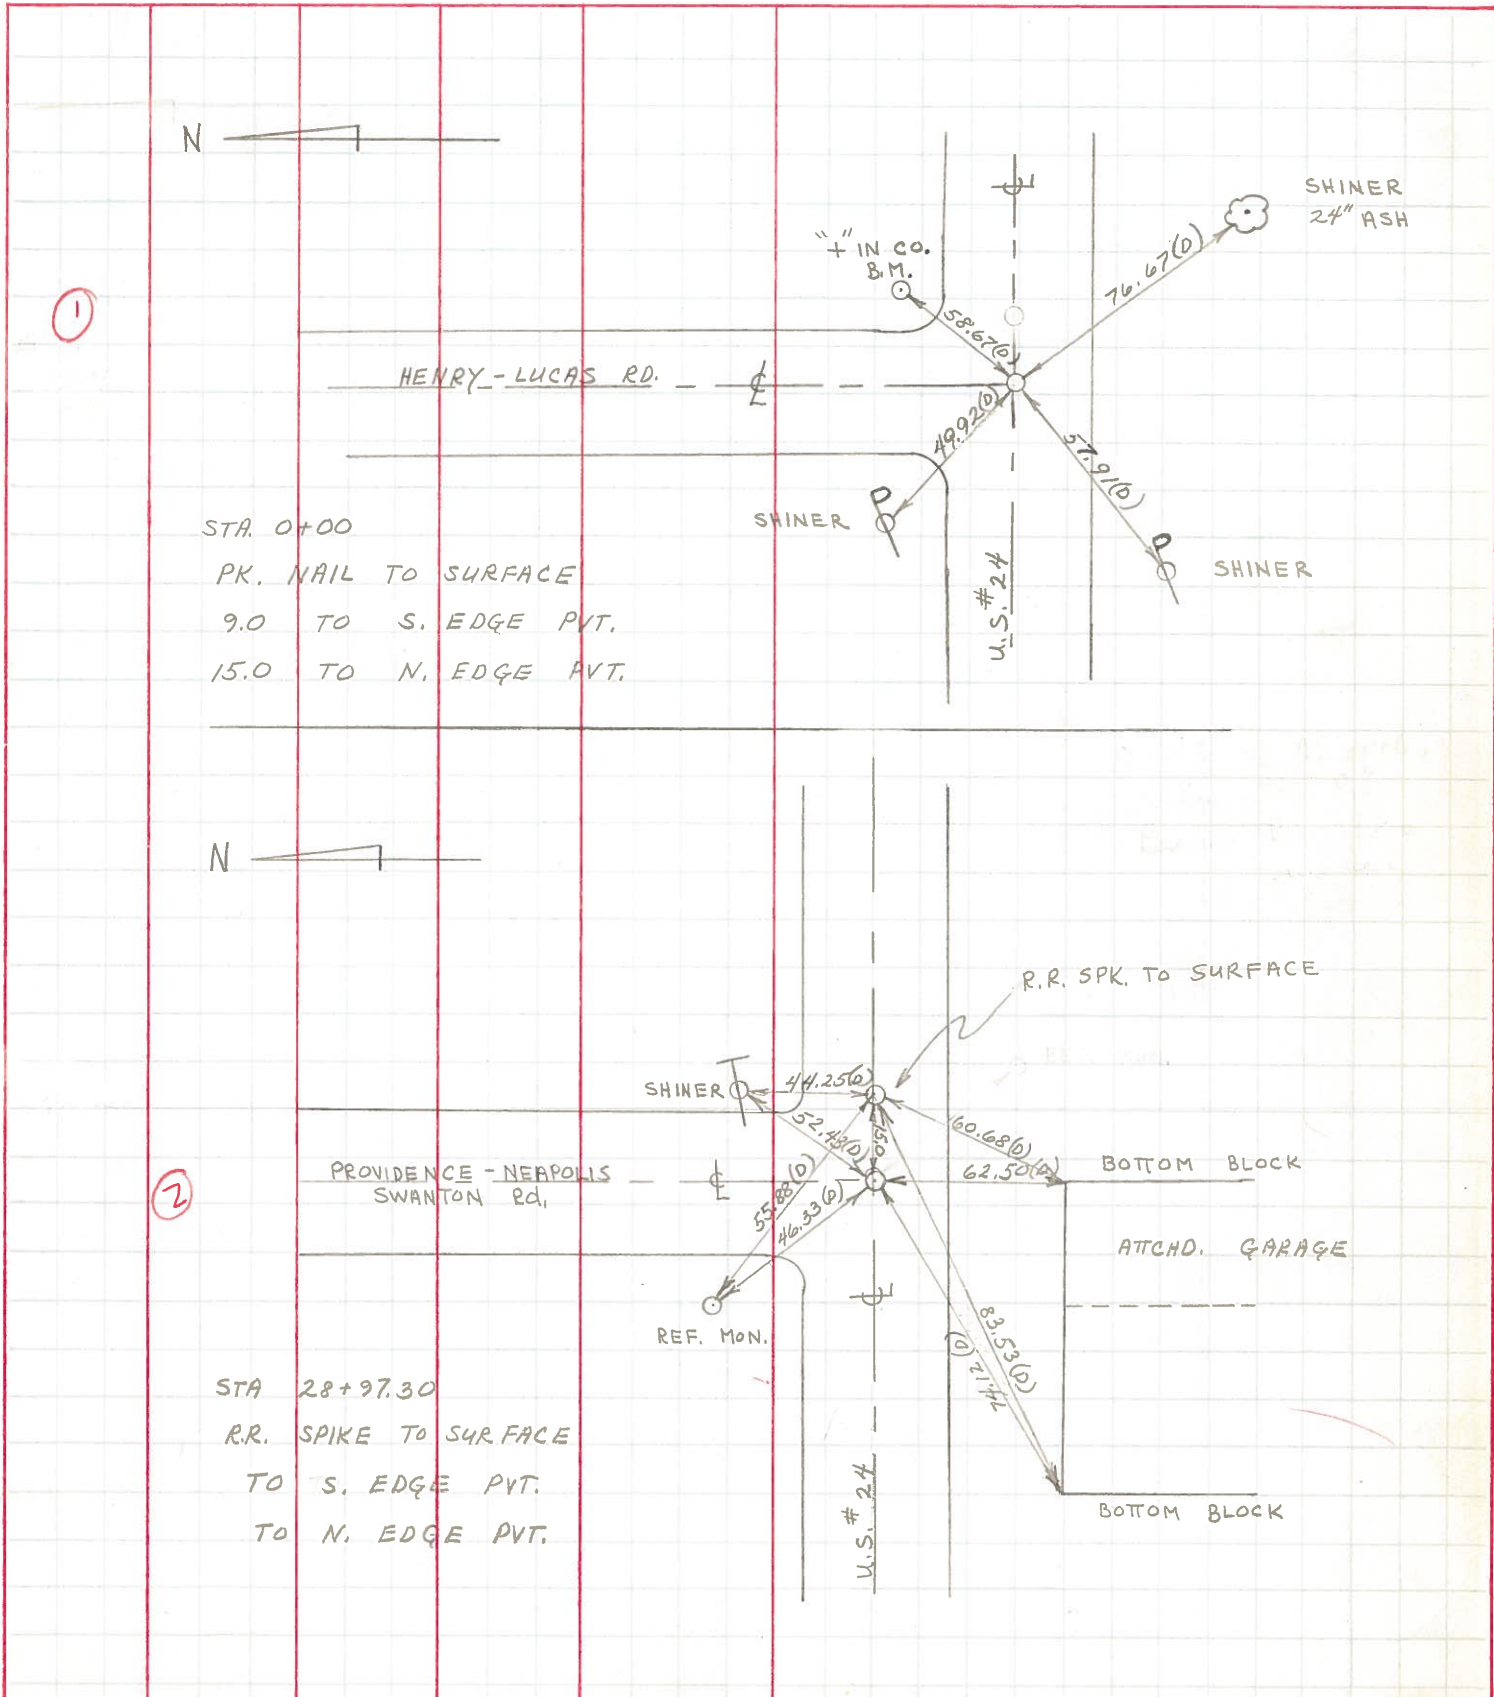 N
SHINER
24" ASH
"+" IN CO.
B.M.
76.67(D)
1
58.67(D)
HENRY - LUCAS RD.
℄
49.92(D)
57.91(D)
SHINER
SHINER
STA. 0+00
PK. NAIL TO SURFACE
9.0 TO S. EDGE PVT.
15.0 TO N. EDGE PVT.
U.S. # 24
℄
N
R.R. SPK. TO SURFACE
SHINER
44.25(D)
52.43(D)
15.0
60.68(D)
62.50(D)
BOTTOM BLOCK
2
PROVIDENCE - NEAPOLIS
SWANTON Rd.
℄
55.88(D)
46.33(D)
ATTCHD. GARAGE
REF. MON.
℄
83.53(D)
74.12(D)
STA 28+97.30
R.R. SPIKE TO SURFACE
TO S. EDGE PVT.
TO N. EDGE PVT.
U.S. # 24
BOTTOM BLOCK